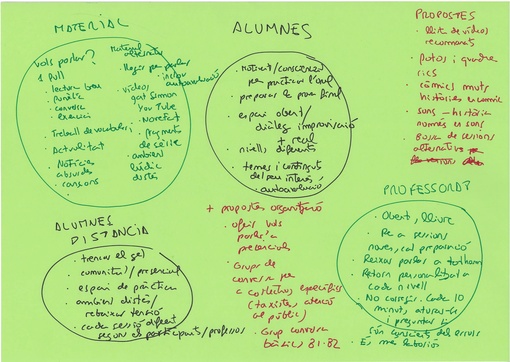 MATERIAL
Vols parlar?
1 full
lectura breu
parella
conversa
exercici
Treball de vocabulari
Activitat
Notícies
absurdes
cançons
Material
alternatiu
llegir per parlar
inclou
autoavaluació
vídeos
gat Simon
You Tube
Notefilat
fragments
de sèrie
ambient
lúdic
distès
ALUMNES
motivat/conscienciat
per practicar l'oral
preparar la prova final
espai obert/
diàleg improvisació
+ real
nivells diferents
temes i continguts
del seu interès
autoavaluació
PROPOSTES
llista de vídeos
recomanats
fotos i quadre
rics
còmics muts
històries en còmic
sons - història
només en sons
Bossa de sessions
alternatives
ALUMNES
DISTÀNCIA
trencar el gel
comunitat/presencial
espai de pràctica
ambient distès/
rebaixar tensió
cada sessió diferent
segons el participants/professors
+ propostes organització
oferir Vols
parlar? a
presencials
Grups de
conversa per
a col·lectius específics
(taxistes, atenció
al públic)
Grup conversa
bàsics B1-B2
PROFESSORAT
Obert, lliure
Per a sessions
noves, cal preparació
Deixar parlar a tothom
Retorn personalitzat a
cada nivell
No corregir. Cada 10
minuts, aturar-se
i preguntar si
són conscients dels errors
És més laboriós